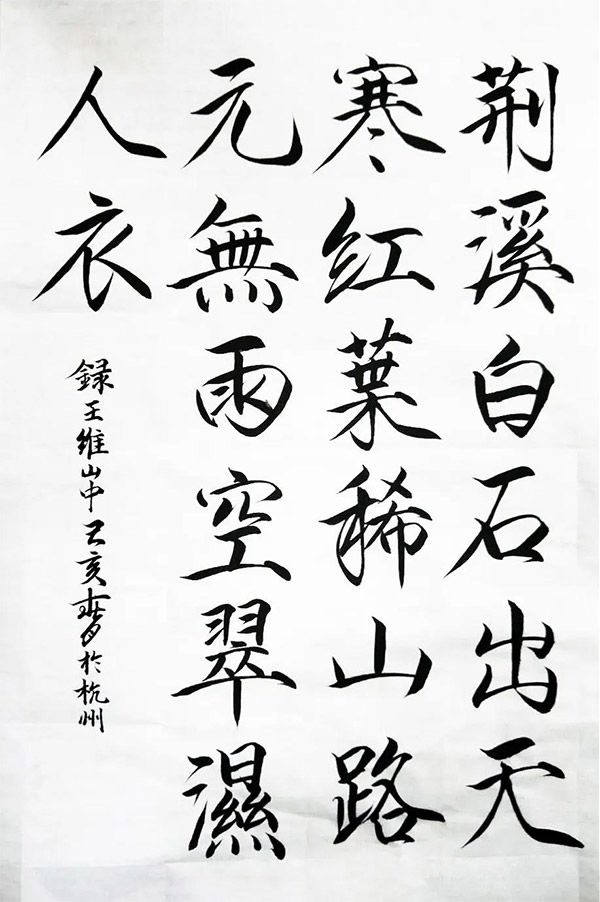 荆溪白石出天
寒红葉稀山路
元無雨空翠濕
人衣
録王維山中己亥春於杭州